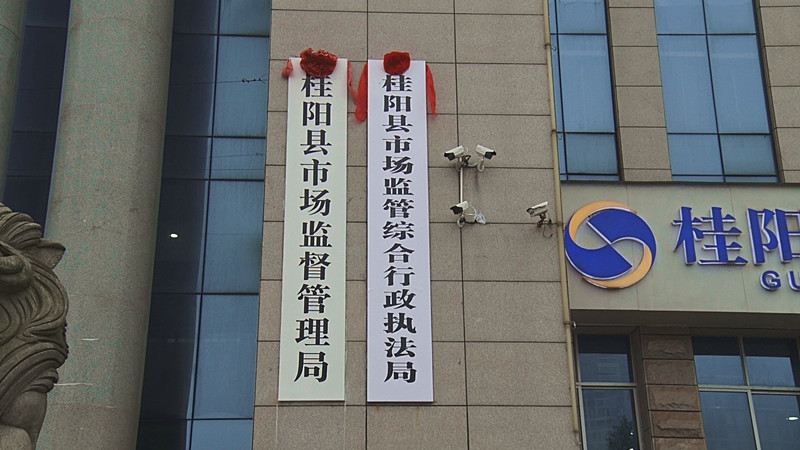 桂阳县市场监督管理局
桂阳县市场监管综合行政执法局
桂阳
GU